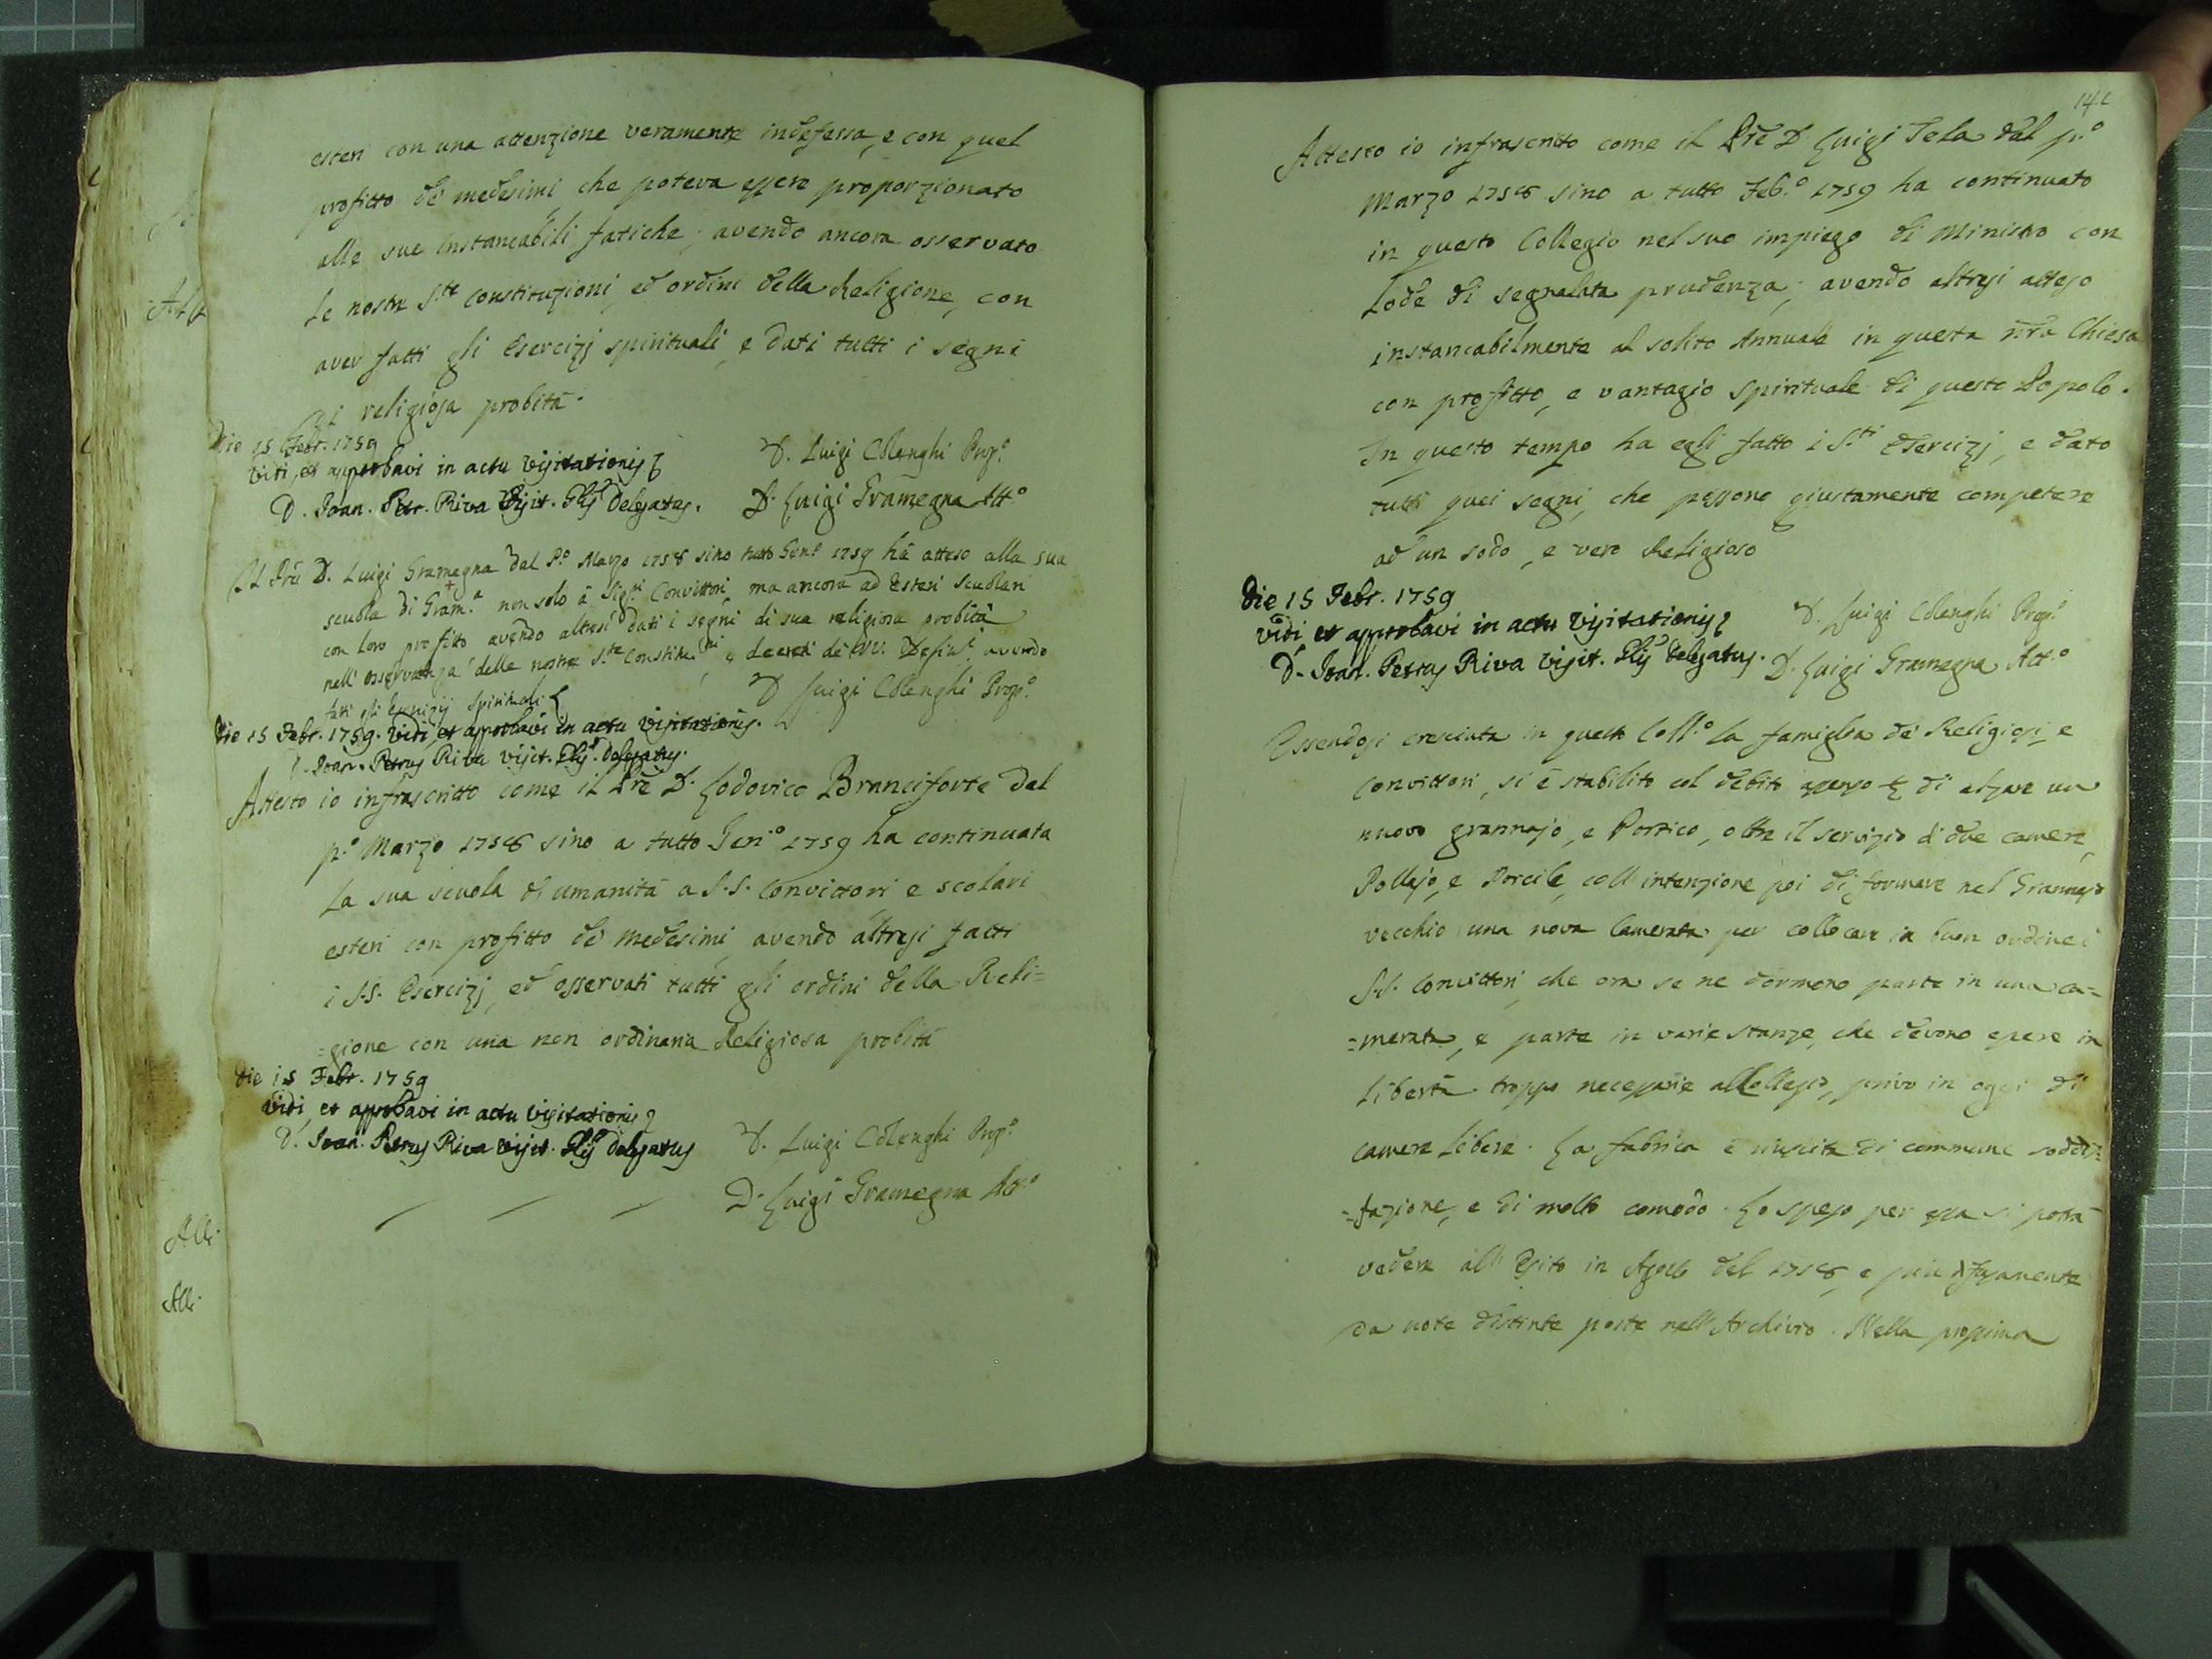 esteri con una attenzione veramente indefessa, e con quel
profitto de' medesimi, che poteva essere proporzionato
alle sue instancabili fatiche; avendo ancora osservato
le nostre S.te Constituzioni, ed ordini della Religione, con
aver fatti gli Esercizj spirituali, e dati tutti i segni
di religiosa probità.
Die 15 Febr. 1759
Vidi, et approbavi in actu Visitationis
D. Luigi Prep.o
D. Joan. Petr. Riva Visit. Glis Delegatus.
D. Luigi Gramegna Att.o
Il Pre D. Luigi Gramegna dal P.o Marzo 1758 sino tutto Gen.o 1759 hà atteso alla sua
scuola di Gram.a non solo à Sig.ri Convittori, ma ancora ad Esteri scuolari
con loro profitto avendo altresì dati i segni di sua religiosa probità
nell'osservanza delle nostre S.te Constitu.ni, e decreti de' VV. Defin.ri avendo
fatti gli Esercizij Spirituali
D. Luigi Prep.o
Die 15 Febr. 1759. Vidi, et approbavi in actu Visitationis.
D. Joan. Petrus Riva Visit. Glis Delegatus.
Attesto io infrascritto come il Pre D. Lodovico Branciforte dal
p.o Marzo 1758 sino a tutto Gen.o 1759 ha continuata
la sua scuola di umanità a S.S. Convittori e scolari
esteri con profitto de' medesimi, avendo altresi fatti
i S.S. Esercizj, ed osservati tutti gli ordini della Reli=
=gione con una non ordinaria Religiosa probità
Die 15 Febr. 1759
Vidi, et approbavi in actu Visitationis
D. Joan. Petrus Riva Visit. Glis Delegatus
D. Luigi Prep.o
D. Luigi Gramegna Att.o
Att
All.
All.
Attesto io infrascritto come il Pre D. Luigi Tela dal p.o
Marzo 1758 sino a tutto Feb.o 1759 ha continuato
in questo Collegio nel suo impiego di Ministro con
Lode di segnalata prudenza; avendo altresi atteso
instancabilmente al solito Annuale in questa nra Chiesa
con profitto, e vantagio spirituale di questo Popolo.
In questo tempo ha egli fatto i S.ti Esercizj, e dato
tutti quei segni, che possono giustamente competere
ad un sodo, e vero Religioso
Die 15 Febr. 1759
Vidi, et approbavi in actu Visitationis
D. Luigi Prep.o
D. Joan. Petrus Riva Visit. Glis Delegatus.
D. Luigi Gramegna Att.o
Essendosi cresciuta in questo Coll.o la famiglia de' Religiosi, e
Convittori, si è stabilito col debito di alzare un
nuovo grannajo, e Portico, oltre il servizio di due camere,
Pollajo, e Porcile, coll'intenzione poi di formare nel Grannajo
vecchio una nova Camerata per collocare in buon ordine i
S.S. Convittori, che ora se ne dormono parte in una ca=
=merata, e parte in varie stanze, che devono essere in
libertà troppo necessarie al Collegio, privo in oggi di
camere libere. La fabrica è riuscita di commune soddis=
=fazione, e di molto comodo. Lo speso per essa si potrà
vedere all'Esito in Agosto del 1758, e più
da note distinte poste nell'Archivio. Nella prossima